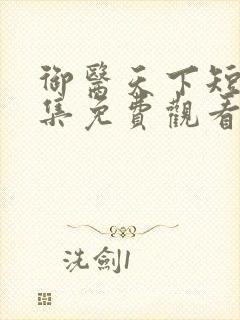 御醫天下短
集免費觀看
洗劍1